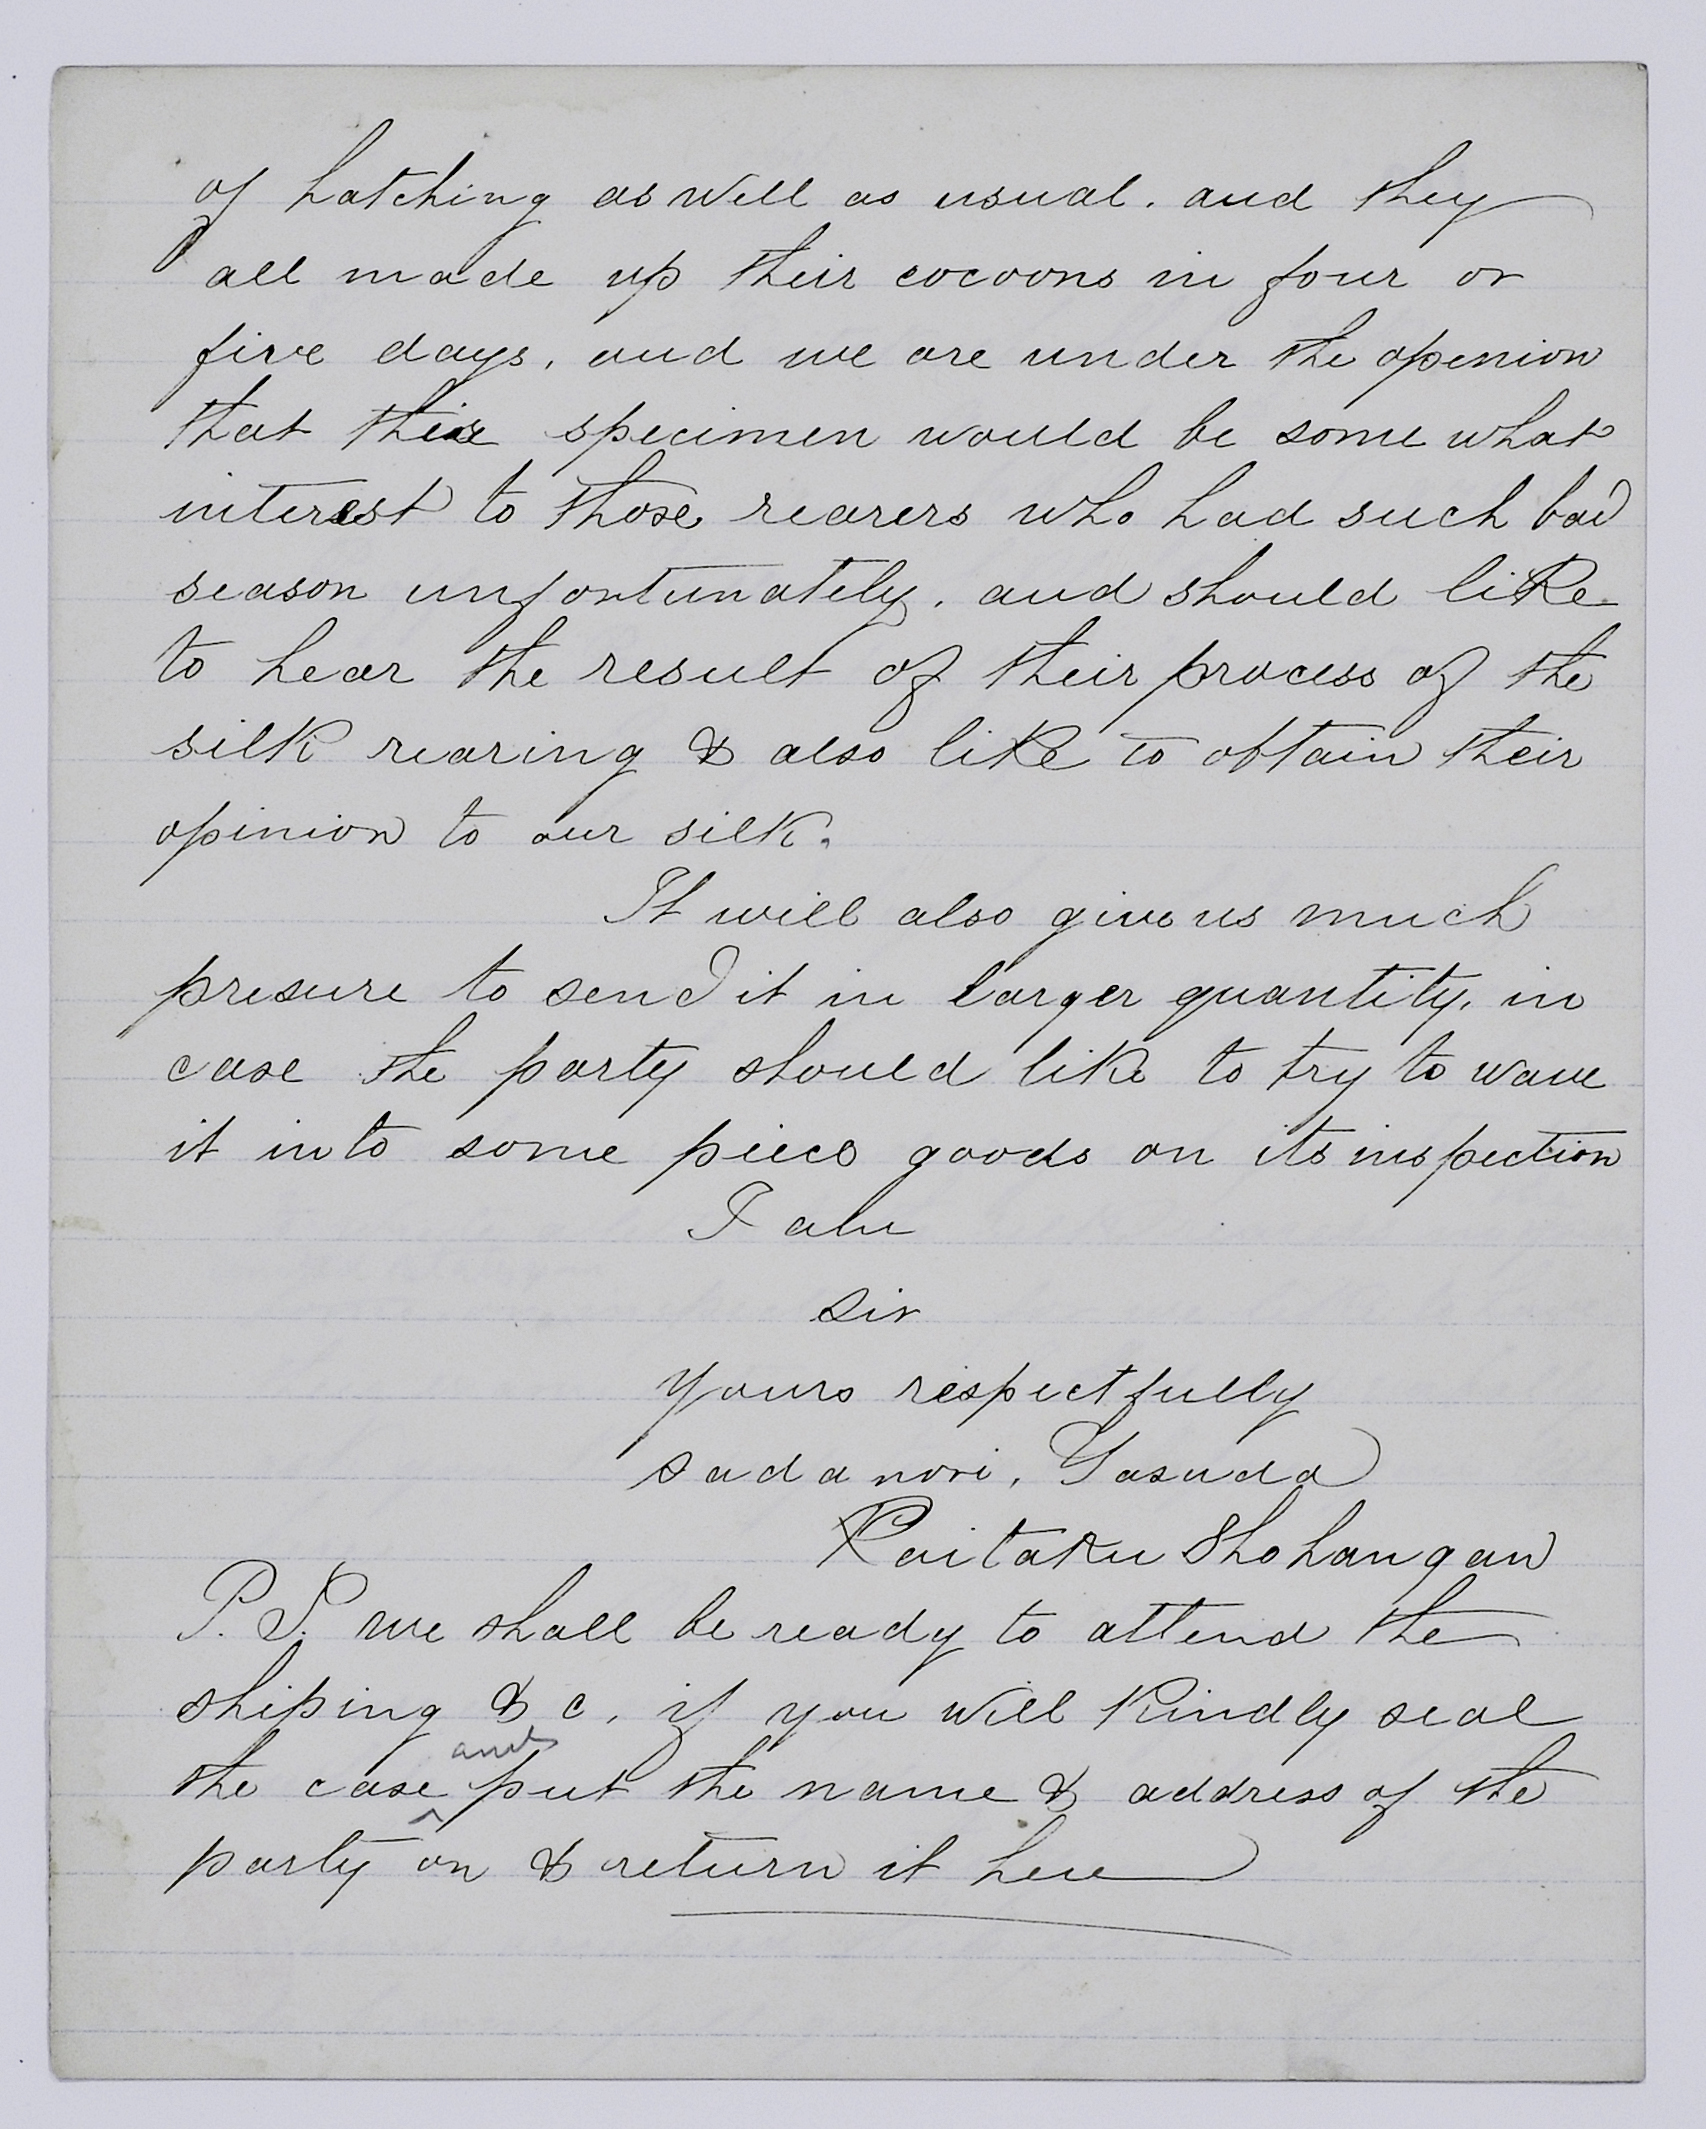 of hatching as well as usual. and they
all made up their cocoons in four or
five days, and we are under the openion
that this specimen would be some what
interest to those rearers who had such bad
season unfortunately. and should like
to hear the result of their process of the
silk rearing & also like to obtain their
opinion to our silk.
It will also give us much
presure to send it in larger quantity, in
case the party should like to try to wave
it into some piece goods on its inspection
I am
Sir
Yours respectfully
Sadanori, Yasuda
Kaitaku Shohangan
P.S. we shall be ready to attend the
shiping & c, if you will kindly seal
the case and put the name & address of the
party on & return it here